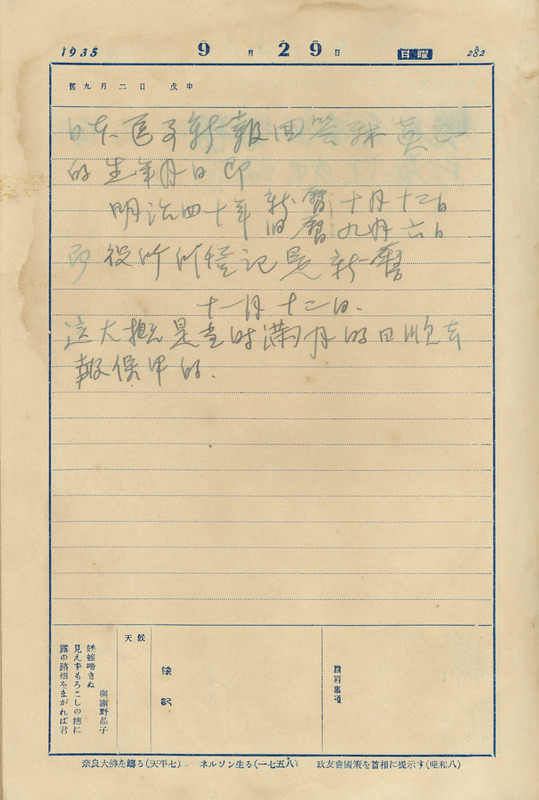 1935 9月29日 日曜 282
舊九月二日 戊申
日本医事新報回答我真正
的生年月日即
明治四十年 新曆 十月十二日
旧曆 九月六日
即役所所登記是新曆
十一月十二日.
這大概是当時満月的日順去
報保甲的.
天候
蟋蟀啼きぬ
見えずもろこしの穂に
露の路畑をまがれば君
與謝野晶子
奈良大佛を鑄る(天平七) ネルソン生る(一七五八) 政友會國策を首相に提示す(昭和八)